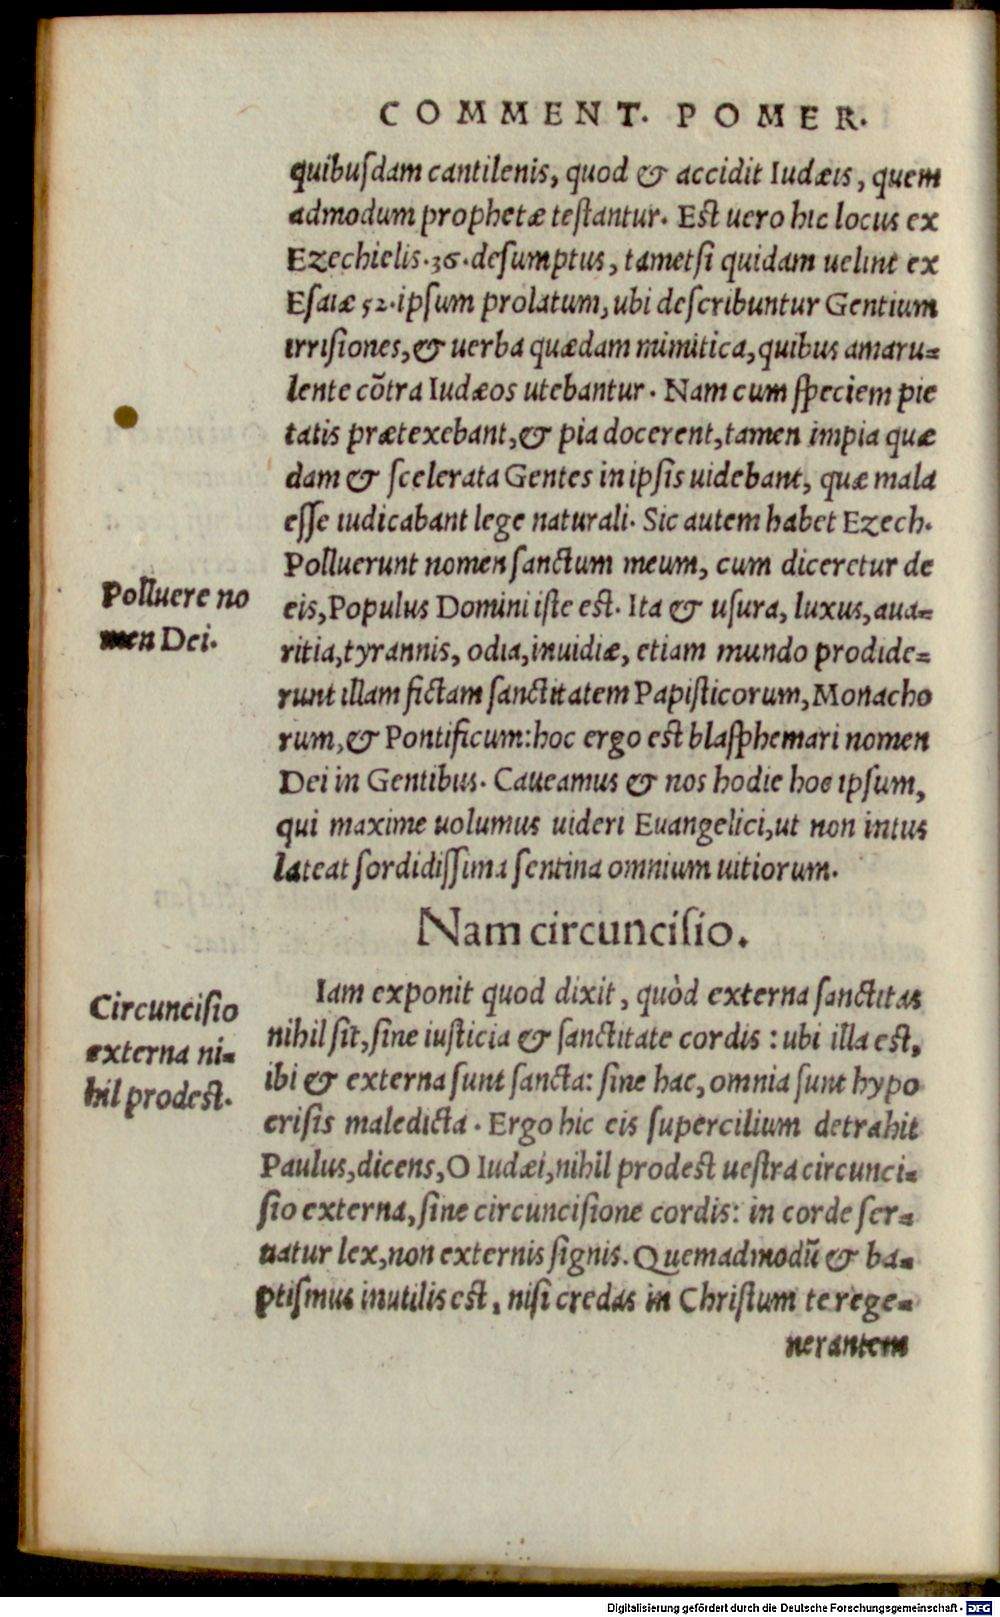 COMMENT. POMER.
quibuſdam cantilenis, quod & accidit Iudæis, quem
admodum prophetæ teſtantur. Eſt uero hic locus ex
Ezechielis.36.deſumptus, tametſi quidam uelint ex
Eſaiæ 52.ipſum prolatum, ubi deſcribuntur Gentium
irriſiones, & uerba quædam mimitica, quibus amaru-
lente cõtra Iudæos utebantur. Nam cum ſpeciem pie
tatis prætexebant, & pia docerent, tamen impia quæ
dam & ſcelerata Gentes in ipſis uidebant, quæ mala
eſſe iudicabant lege naturali. Sic autem habet Ezech.
Polluerunt nomen ſanctum meum, cum diceretur de
eis, Populus Domini iſte eſt. Ita & uſura, luxus, aua-
ritia, tyrannis, odia, inuidiæ, etiam mundo prodide-
runt illam fictam ſanctitatem Papiſticorum, Monacho
rum, & Pontificum: hoc ergo eſt blaſphemari nomen
Dei in Gentibus. Caueamus & nos hodie hoc ipſum,
qui maxime uolumus uideri Euangelici, ut non intus
lateat ſordidiſſima ſentina omnium uitiorum.
Polluere no
men Dei.
Nam circunciſio.
Iam exponit quod dixit, quòd externa ſanctitas
nihil ſit, ſine iuſticia & ſanctitate cordis: ubi illa eſt,
ibi & externa ſunt ſancta: ſine hac, omnia ſunt hypo
criſis maledicta. Ergo hic eis ſupercilium detrahit
Paulus, dicens, O Iudæi, nihil prodeſt ueſtra circunci-
ſio externa, ſine circunciſione cordis: in corde ſer-
uatur lex, non externis ſignis. Quemadmodũ & ba-
ptiſmus inutilis eſt, niſi credas in Chriſtum te rege-
nerantem
Circunciſio
externa ni-
hil prodeſt.
Digitalisierung gefördert durch die Deutsche Forschungsgemeinschaft - DFG